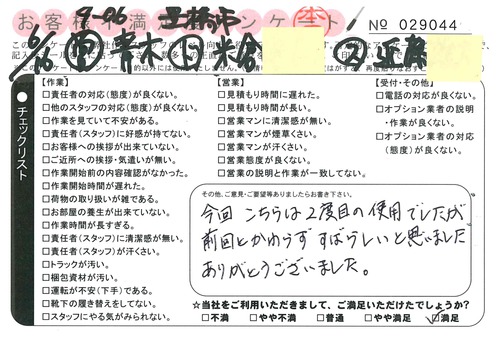 お客様不満足アンケート
9-06 豊橋市 (本)
№ 029044
青木
近藤
●チェックリスト
【作業】
□責任者の対応(態度)が良くない。
□他のスタッフの対応(態度)が良くない。
□作業を見ていて不安がある。
□責任者(スタッフ)に好感が持てない。
□お客様への挨拶が出来ていない。
□ご近所への挨拶・気遣いが無い。
□作業開始前の内容確認がなかった。
□作業開始時間が遅れた。
□荷物の取り扱いが雑である。
□お部屋の養生が出来ていない。
□作業時間が長すぎる。
□責任者(スタッフ)に清潔感が無い。
□責任者(スタッフ)が汗くさい。
□トラックが汚い。
□梱包資材が汚い。
□運転が不安(下手)である。
□靴下の履き替えをしてない。
□スタッフにやる気がみられない。
【営業】
□見積もり時間に遅れた。
□見積もり時間が長い。
□営業マンに清潔感が無い。
□営業マンが煙草くさい。
□営業マンが汗くさい。
□営業態度が良くない。
□営業の説明と作業が一致してない。
【受付・その他】
□電話の対応が良くない。
□オプション業者の説明
・作業が良くない。
□オプション業者の対応
(態度)が良くない。
その他、ご意見・ご要望等ありましたらお書き下さい。
今回 こちらは2度目の使用でしたが
前回とかわらず すばらしいと思いました
ありがとうございました。
☆当社をご利用いただきまして、ご満足いただけたでしょうか?
□不満 □やや不満 □普通 □やや満足 □満足